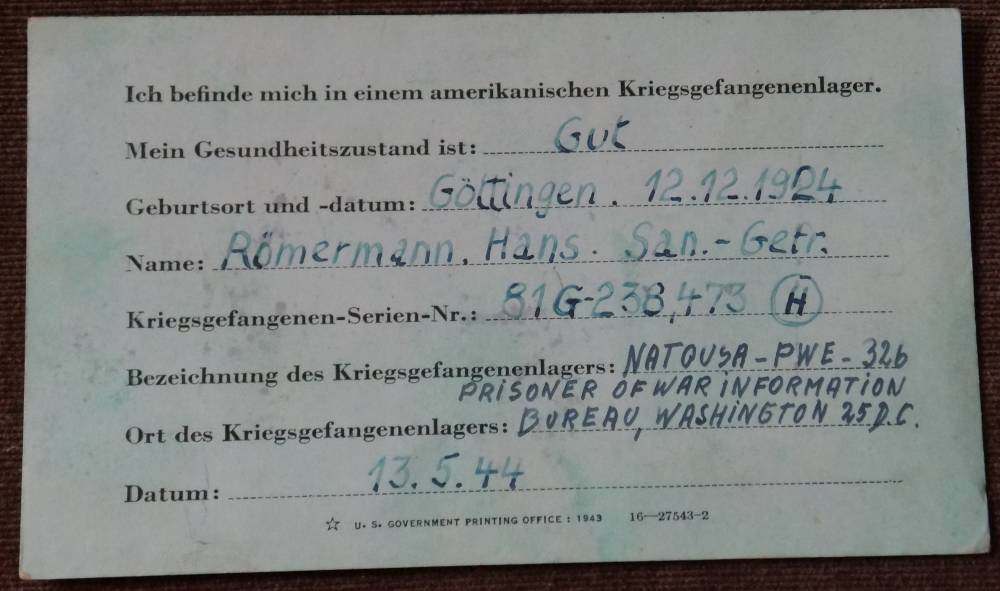 Ich befinde mich in einem amerikanischen Kriegsgefangenenlager.
Mein Gesundheitszustand ist: Gut
Geburtsort und -datum: Göttingen. 12.12.1924
Name: Römermann, Hans. San.-Gefr.
Kriegsgefangenen-Serien-Nr.: 81G-238,473 (H)
Bezeichnung des Kriegsgefangenenlagers: NATOUSA-PWE-326
PRISONER OF WAR INFORMATION
Ort des Kriegsgefangenenlagers: BUREAU, WASHINGTON 25 D.C.
Datum: 13.5.44
☆ U. S. GOVERNMENT PRINTING OFFICE : 1943 16—27543-2